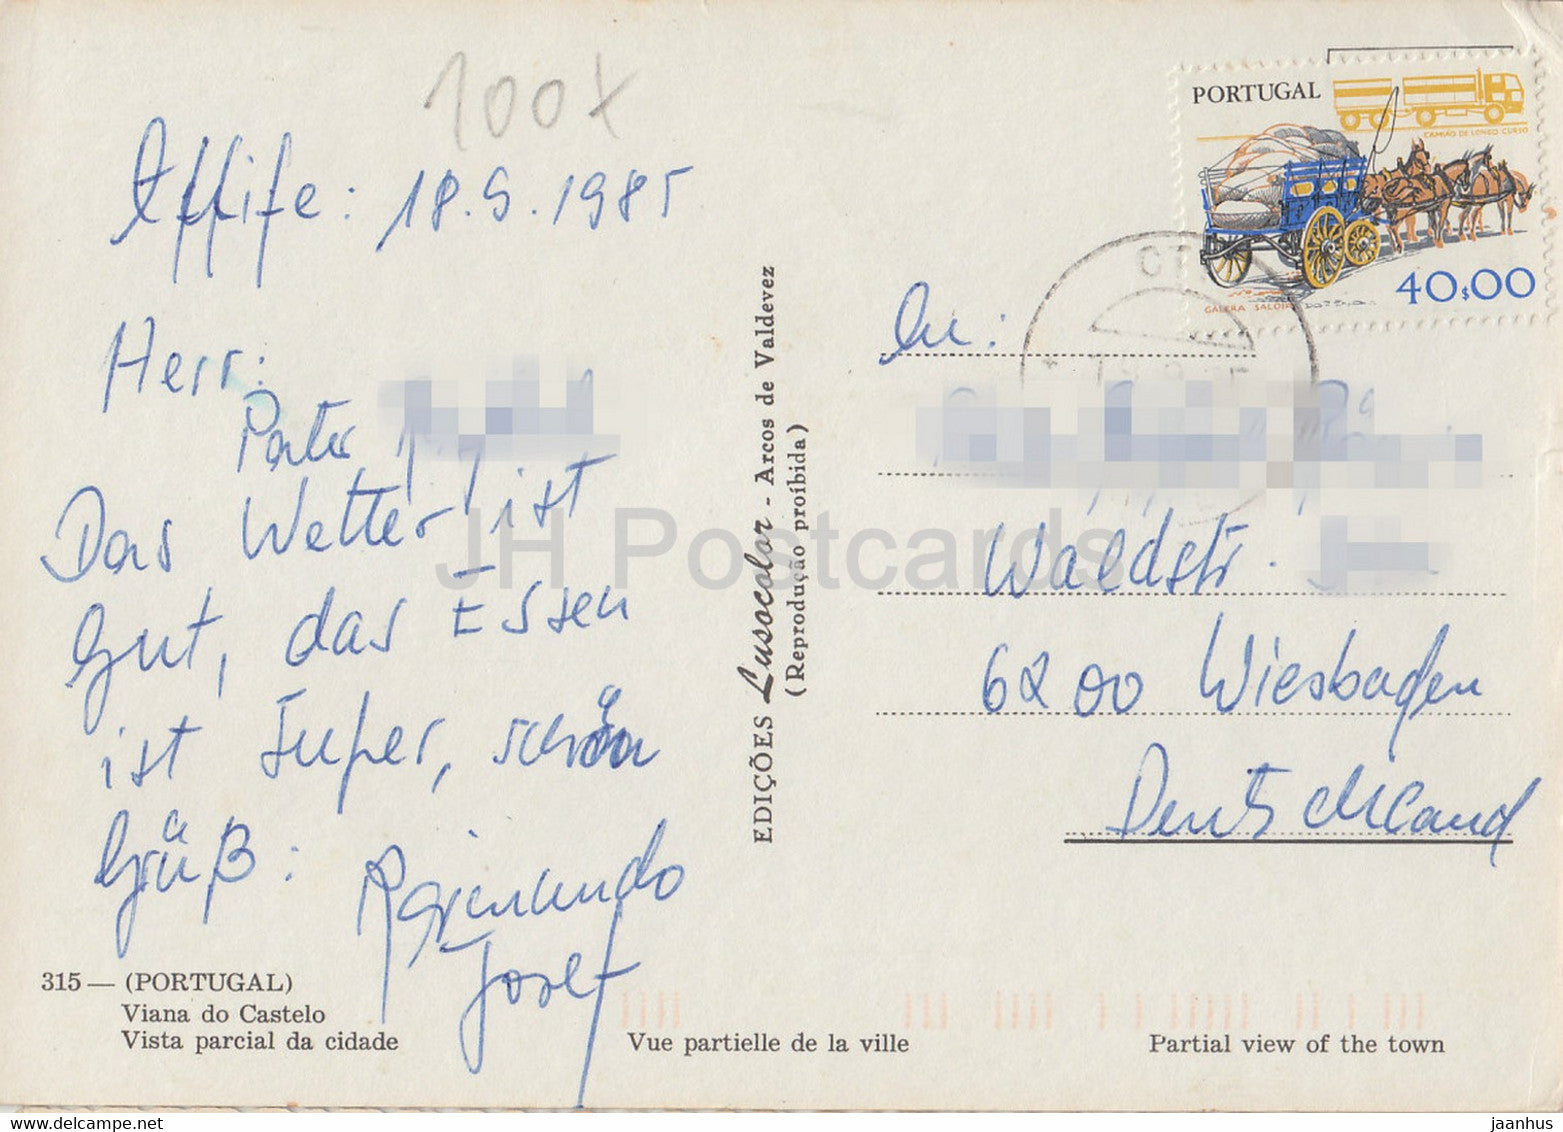 100x
Affife: 18.9.1985
Herr:
Pater
Das Wetter ist
Gut, das Essen
ist Super, schön
Grüß:
Raimundo
Josef
315 — (PORTUGAL)
Viana do Castelo
Vista parcial da cidade
Vue partielle de la ville
Partial view of the town
EDIÇÕES Lusocolor - Arcos de Valdevez
(Reprodução proibida)
PORTUGAL
CAMIÃO DE LONGO CURSO
GALERA SALOIA
40$00
An:
Waldstr.
6200 Wiesbaden
Deutschland
JH Postcards
jaanhus